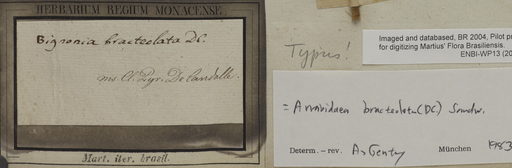 HERBARIUM REGIUM MONACENSE.
Bignonia bracteolata DC.
ms. Cl. Pyr. De Candolle.
Mart. iter. brasil.
Typus!
Imaged and databased, BR 2004, Pilot pr
for digitizing Martius' Flora Brasiliensis.
ENBI-WP13 (20
= Arrabidaea bracteolata (DC.) Sandw.
Determ. – rev. A. Gentry München 1983